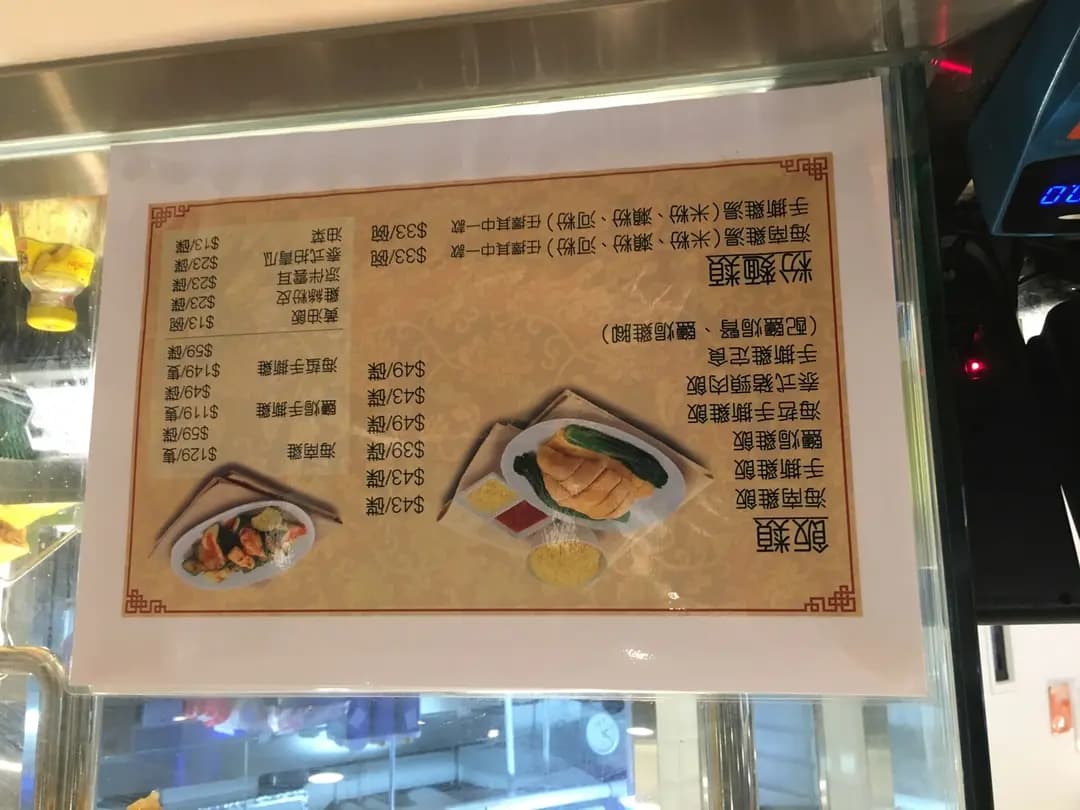 飯類
海南雞飯 $43/碟
手撕雞飯 $43/碟
鹽焗雞飯 $39/碟
海哲手撕雞飯 $49/碟
泰式豬頸肉飯 $43/碟
手撕雞定食 $49/碟
(配鹽焗腎、鹽焗雞腳)
粉麵類
海南雞湯(米粉、瀨粉、河粉)任擇其中一款 $33/碗
手撕雞湯(米粉、瀨粉、河粉)任擇其中一款 $33/碗
海南雞 $129/隻
$59/碟
鹽焗手撕雞 $119/隻
$49/碟
海蜇手撕雞 $149/隻
$59/碟
黃油飯 $13/碗
雞絲粉皮 $23/碟
涼伴雲耳 $23/碟
泰式拍青瓜 $23/碟
油菜 $13/碟